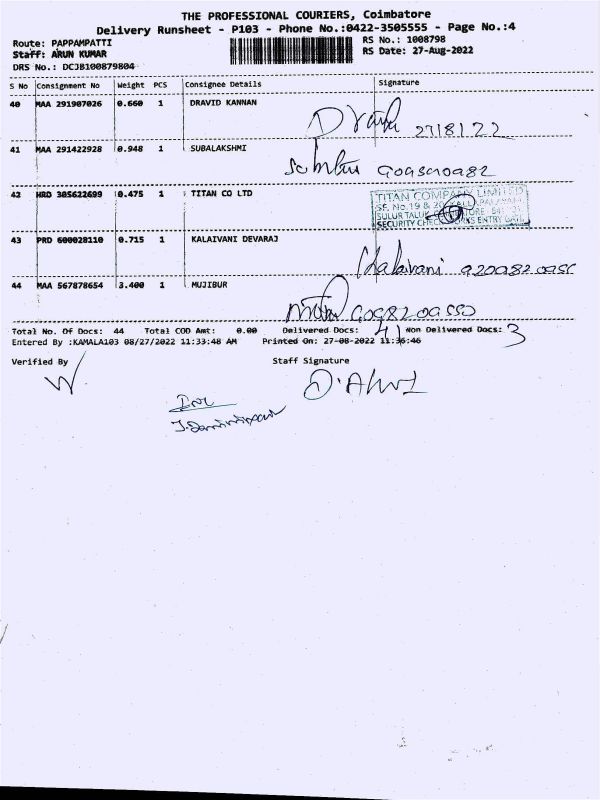 THE PROFESSIONAL COURIERS, Coimbatore
Delivery Runsheet - P103 - Phone No.:0422-3505555 - Page No.:4
Route: PAPPAMPATTI RS No.: 1008798
Staff: ARUN KUMAR RS Date: 27-Aug-2022
DRS No.: DCJB100879804
S No Consignment No Weight PCS Consignee Details Signature
40 MAA 291907026 0.660 1 DRAVID KANNAN
27/8/22
41 MAA 291422928 0.948 1 SUBALAKSHMI
42 HRD 305622699 0.475 1 TITAN CO LTD
TITAN COMPANY LIMITED
SF. No.19 & 20
SULUR TALUK
SECURITY
43 PRD 600028110 0.715 1 KALAIVANI DEVARAJ
Kalaivani
44 MAA 567878654 3.400 1 MUJIBUR
Total No. Of Docs: 44 Total COD Amt: 0.00 Delivered Docs: 41 Non Delivered Docs: 3
Entered By :KAMALA103 08/27/2022 11:33:48 AM Printed On: 27-08-2022 11:36:46
Verified By Staff Signature